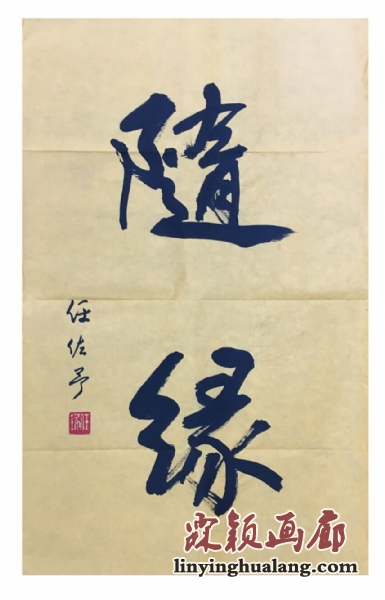 隨
缘
任佐予
霖颖画廊
linyinghualang.com